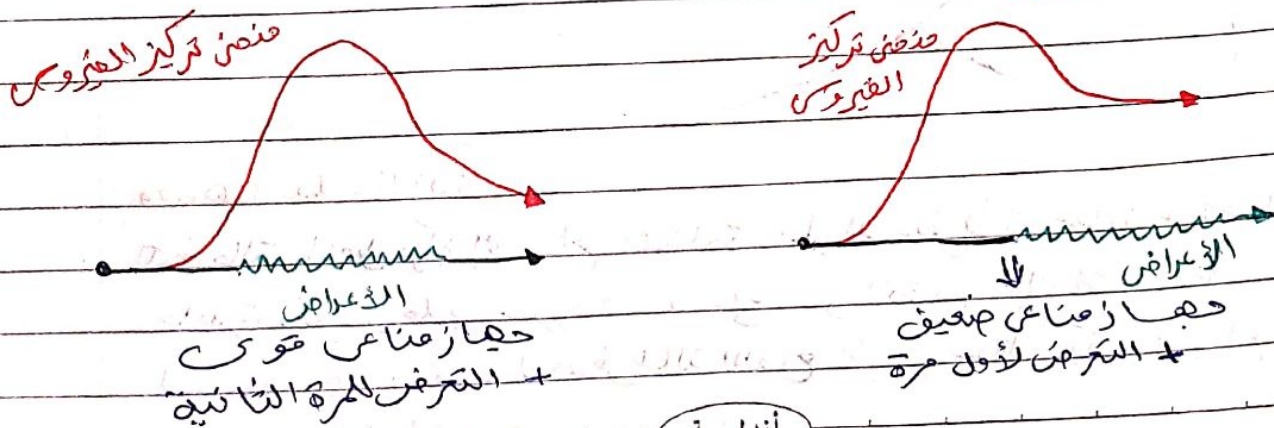 منحنى تركيز
الفيروس
الأعراض
جهاز مناعى ضعيف
+ التعرض لأول مرة
منحنى تركيز الفيروس
الأعراض
جهاز مناعى قوى
+ التعرض للمرة الثانية